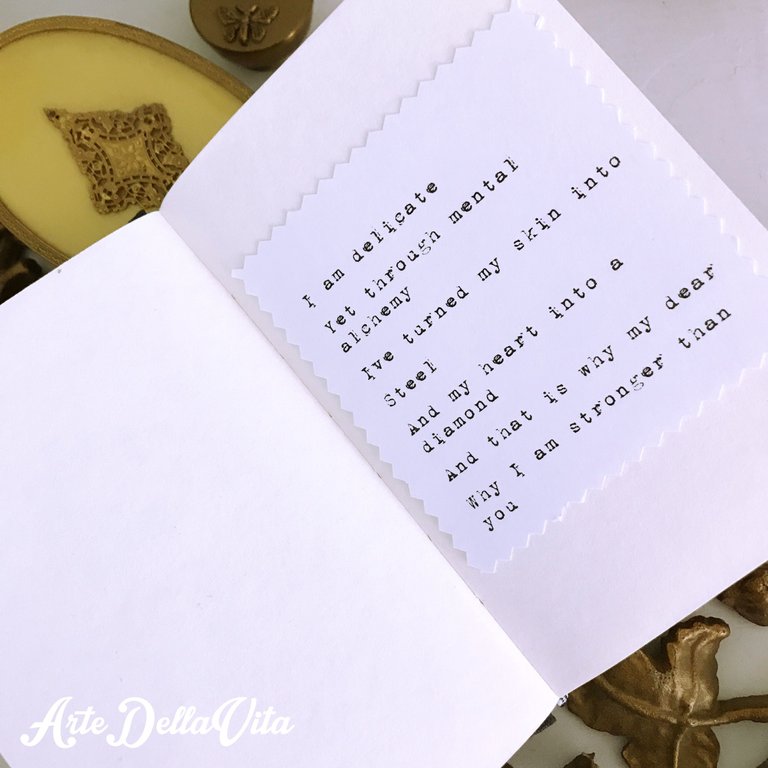 I am delicate
Yet through mental
alchemy
Ive turned my skin into
Steel
And my heart into a
diamond
And that is why my dear
Why I am stronger than
you
Arte DellaVita